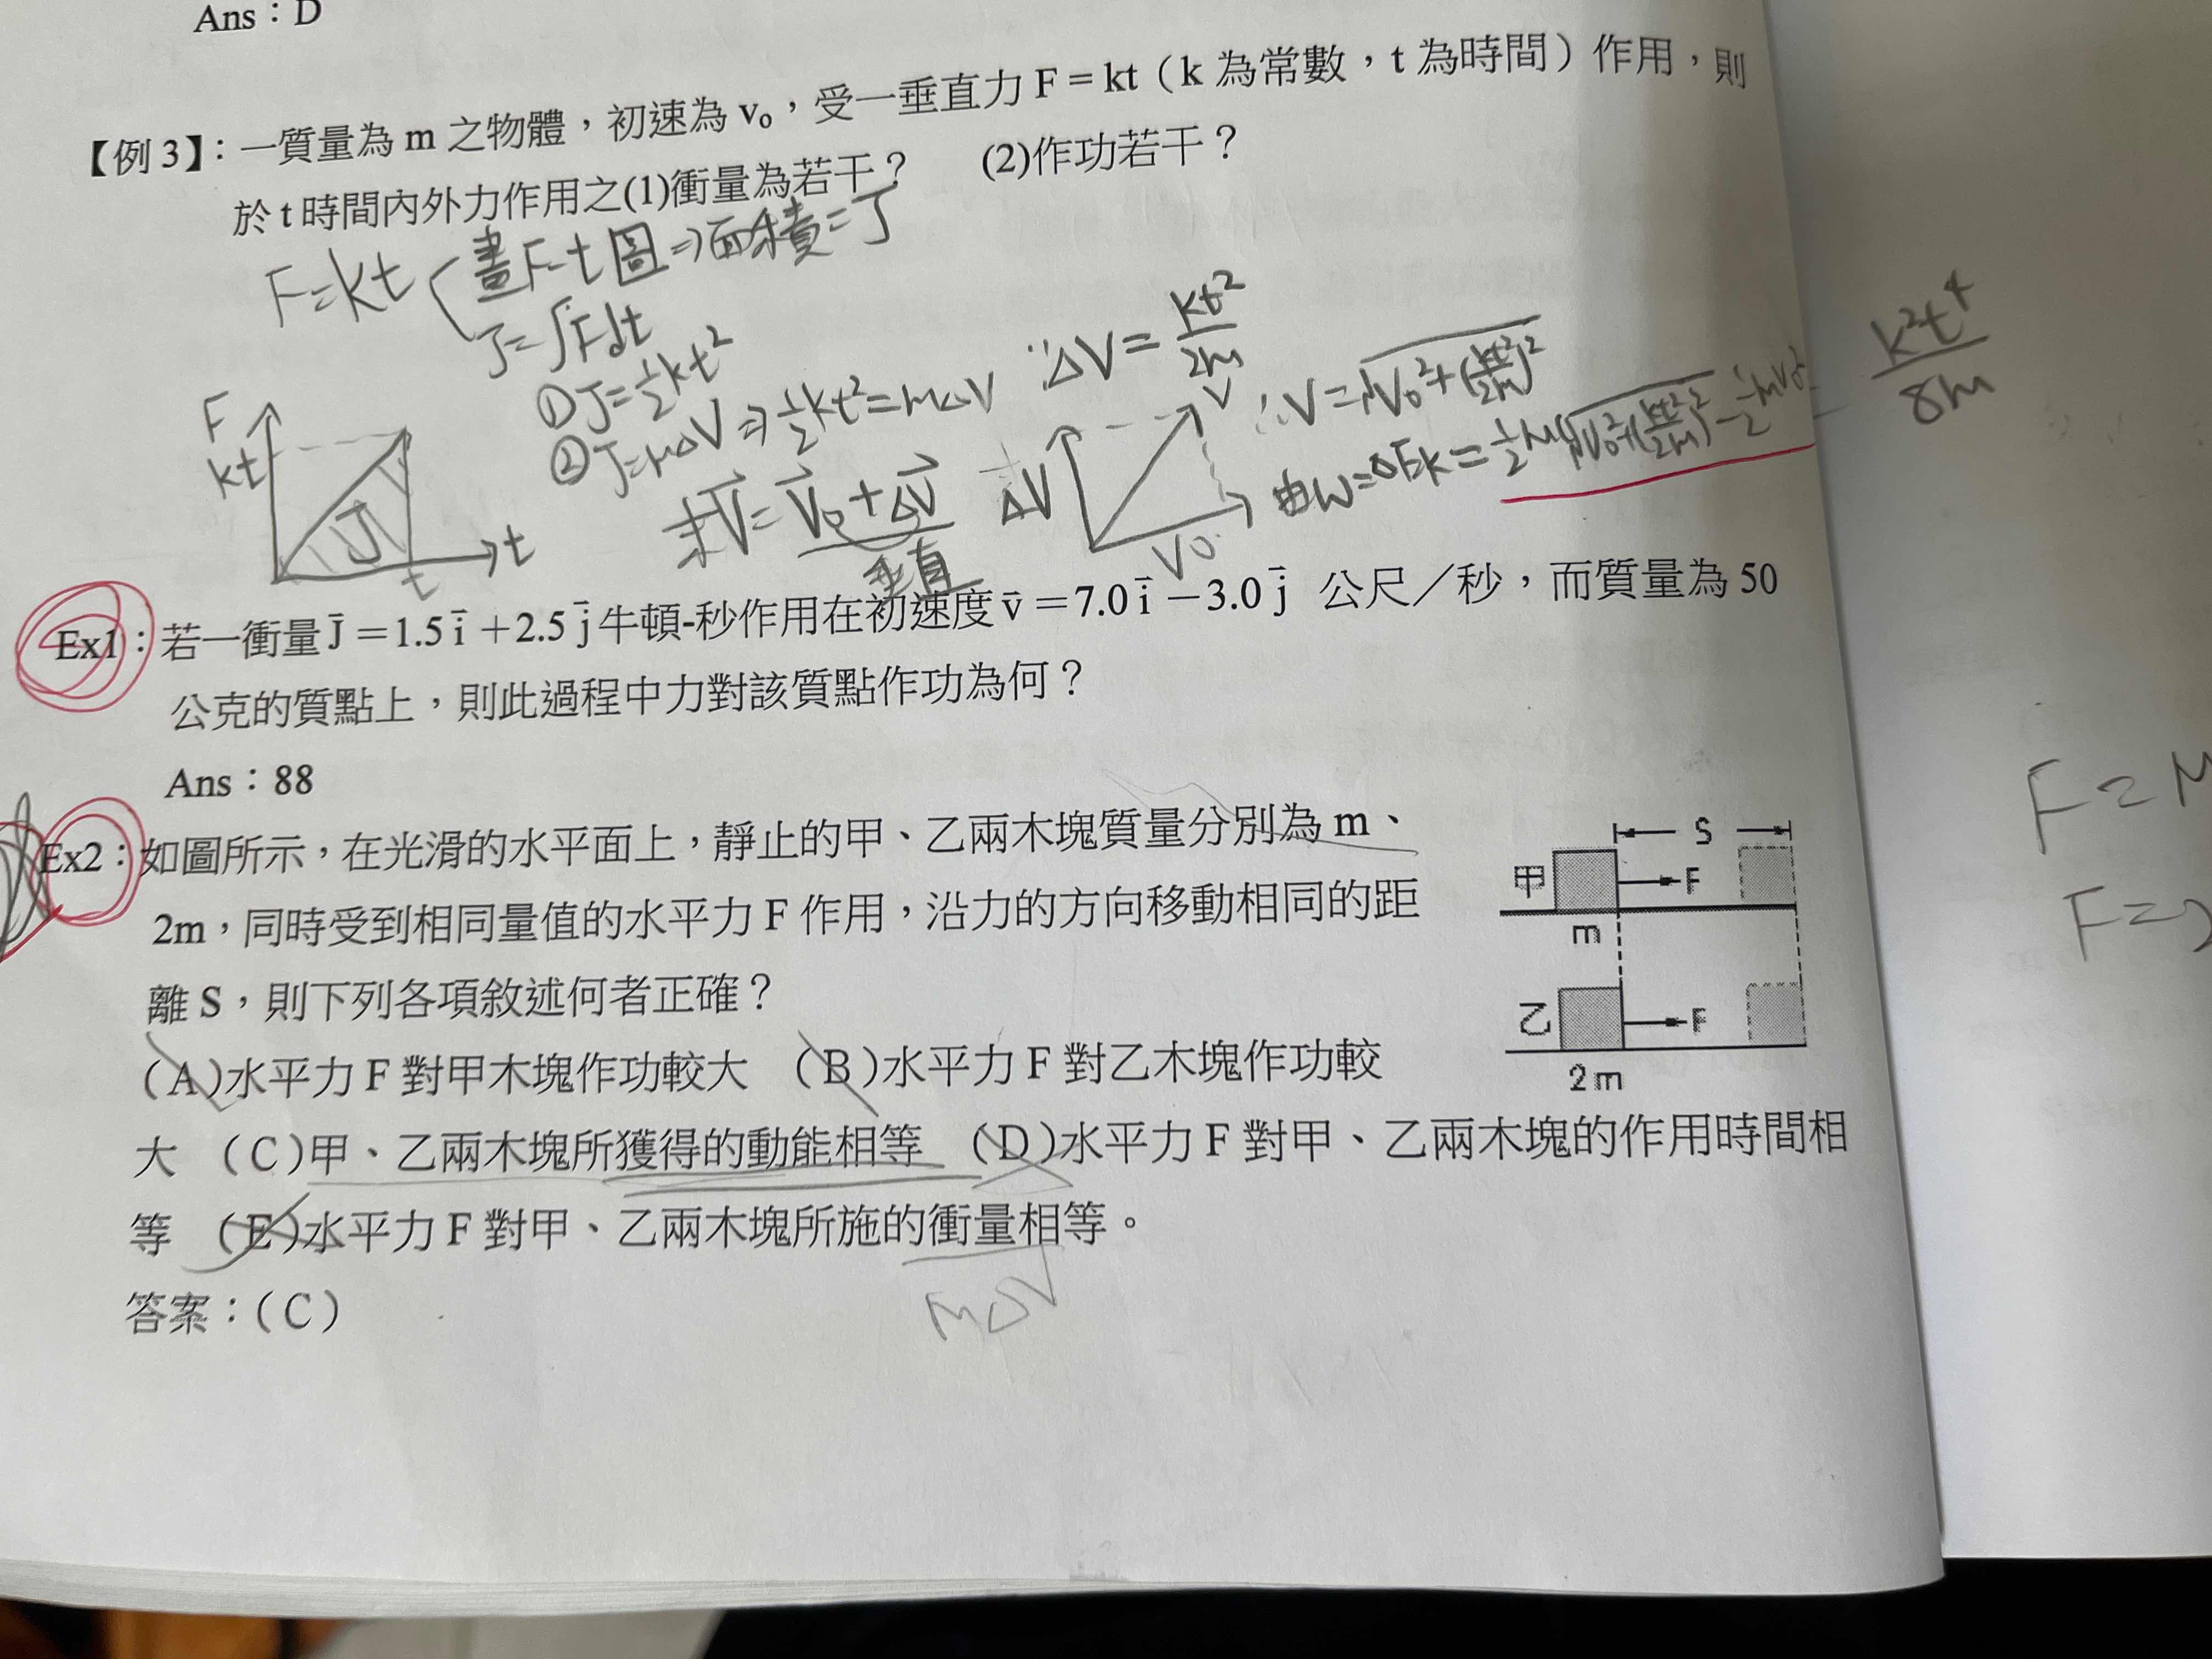 Ans：D
【例 3】：一質量為 m 之物體，初速為 v₀，受一垂直力 F = kt（k 為常數，t 為時間）作用，則
於 t 時間內外力作用之(1)衝量為若干？ (2)作功若干？
F=kt
畫F-t圖⇒面積=J
J=∫Fdt
①J=½kt²
②J=m△V⇒½kt²=m△V
∴△V=kt²/2m
F
kt
J
t
t
求V⃗=V⃗₀+△V⃗
垂直
△V
V
V₀
∴V=√V₀²+(kt²/2m)²
由W=△Ek=½m(√V₀²+(kt²/2m)²)²-½mV₀²
k²t⁴/8m
Ex1：若一衝量 J̄＝1.5 ī＋2.5 j̄ 牛頓-秒作用在初速度 v̄＝7.0 ī－3.0 j̄ 公尺／秒，而質量為 50
公克的質點上，則此過程中力對該質點作功為何？
Ans：88
Ex2：如圖所示，在光滑的水平面上，靜止的甲、乙兩木塊質量分別為 m、
2m，同時受到相同量值的水平力 F 作用，沿力的方向移動相同的距
離 S，則下列各項敘述何者正確？
(A)水平力 F 對甲木塊作功較大 (B)水平力 F 對乙木塊作功較
大 (C)甲、乙兩木塊所獲得的動能相等 (D)水平力 F 對甲、乙兩木塊的作用時間相
等 (E)水平力 F 對甲、乙兩木塊所施的衝量相等。
m△V
答案：(C)
S
甲
F
m
乙
F
2m
F=
F=